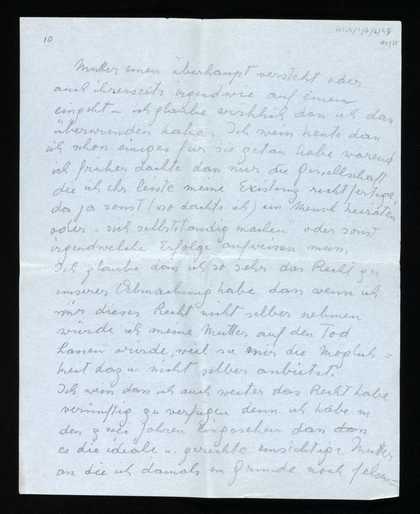 10
Mutter einen überhaupt versteht oder
auch ihrerseits irgendwie auf einen
eingeht - ich glaube wirklich dass ich das
überwunden habe. Ich weiss heute dass
ich schon einiges für sie getan habe während
ich früher dachte dass nur die Gesellschaft
die ich ihr leiste meine Existenz rechtfertigt,
da ja sonst (so dachte ich) ein Mensch heiraten
oder sich selbstständig machen oder sonst
irgendwelche Erfolge aufweisen muss.
Ich glaube dass ich so sehr das Recht zu
unserer habe, dass wenn ich
mir dieses Recht nicht selber nehmen
würde ich meine Mutter auf den Tod
hassen würde, weil sie mir die Möglich=
keit dazu nicht selber anbietet.
Ich weiss dass ich auch weiter das Recht habe
vernünftig zu verfügen denn ich habe in
den zwei Jahren eingesehen dass
es die ideale u. gerechte einsichtige Mutter,
an die ich damals im Grunde noch